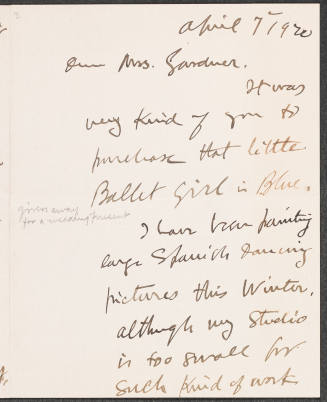 April 7th 1920
Dear Mrs. Gardner.
It was
very kind of you to
purchase that little
Ballet Girl in Blue.
given away
for a wedding present
I have been painting
large Spanish Dancing
pictures this Winter,
although my Studio
is too small for
such kind of work